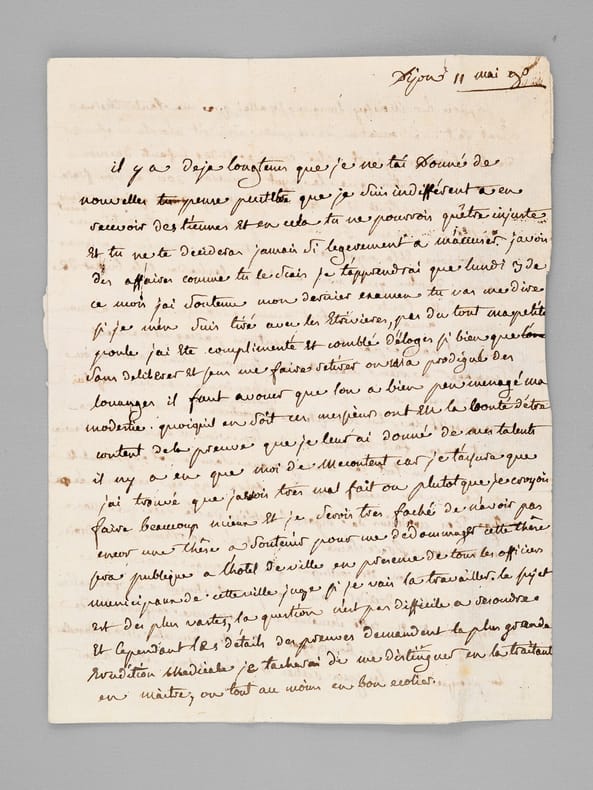 Dijon 11 mai 90
il y a deja longtems que je ne tai Donné de
nouvelles pense peutetre que je suis indifférent a en
recevoir des tiennes Et en cela tu ne pourrois quêtre injuste
Et tu ne te decideras jamais si legerement a m'accuser. j'avois
des affaires comme tu le scais je t'apprendrai que lundi 3 de
ce mois j'ai soutenu mon dernier examen tu vas me dire
si je m'en suis tiré avec les Etrivieres, pas du tout ma petite
poule j'ai Eté complimenté et comblé d'Eloges si bien que
sans deliberer Et sans me faire retirer on m'a prodigué des
louanges il faut avouer que l'on a bien peu menagé ma
modestie. quoiquil en soit ces messieurs ont Eu la bonté d'étre
content de la preuve que je leur ai donné de mes talents
il n'y a eu que moi de Mecontent car je t'assure que
j'ai trouvé que j'avois tres mal fait ou plutot que je croyois
faire beaucoup mieux Et je serois tres faché de n'avoir pas
encor une thèse a soutenir pour me dédommager cette thèse
sera publique a l'hotel de ville en présence de tous les officiers
municipaux de cette ville juge si je vais la travailler. le sujet
est des plus vastes, la question n'est pas difficile a résoudre
Et Cependant les détails des preuves demandent la plus grande
Erudition Medicale je tacherai de me distinguer en la traitant
en maitre, ou tout au moins en bon ecolier.